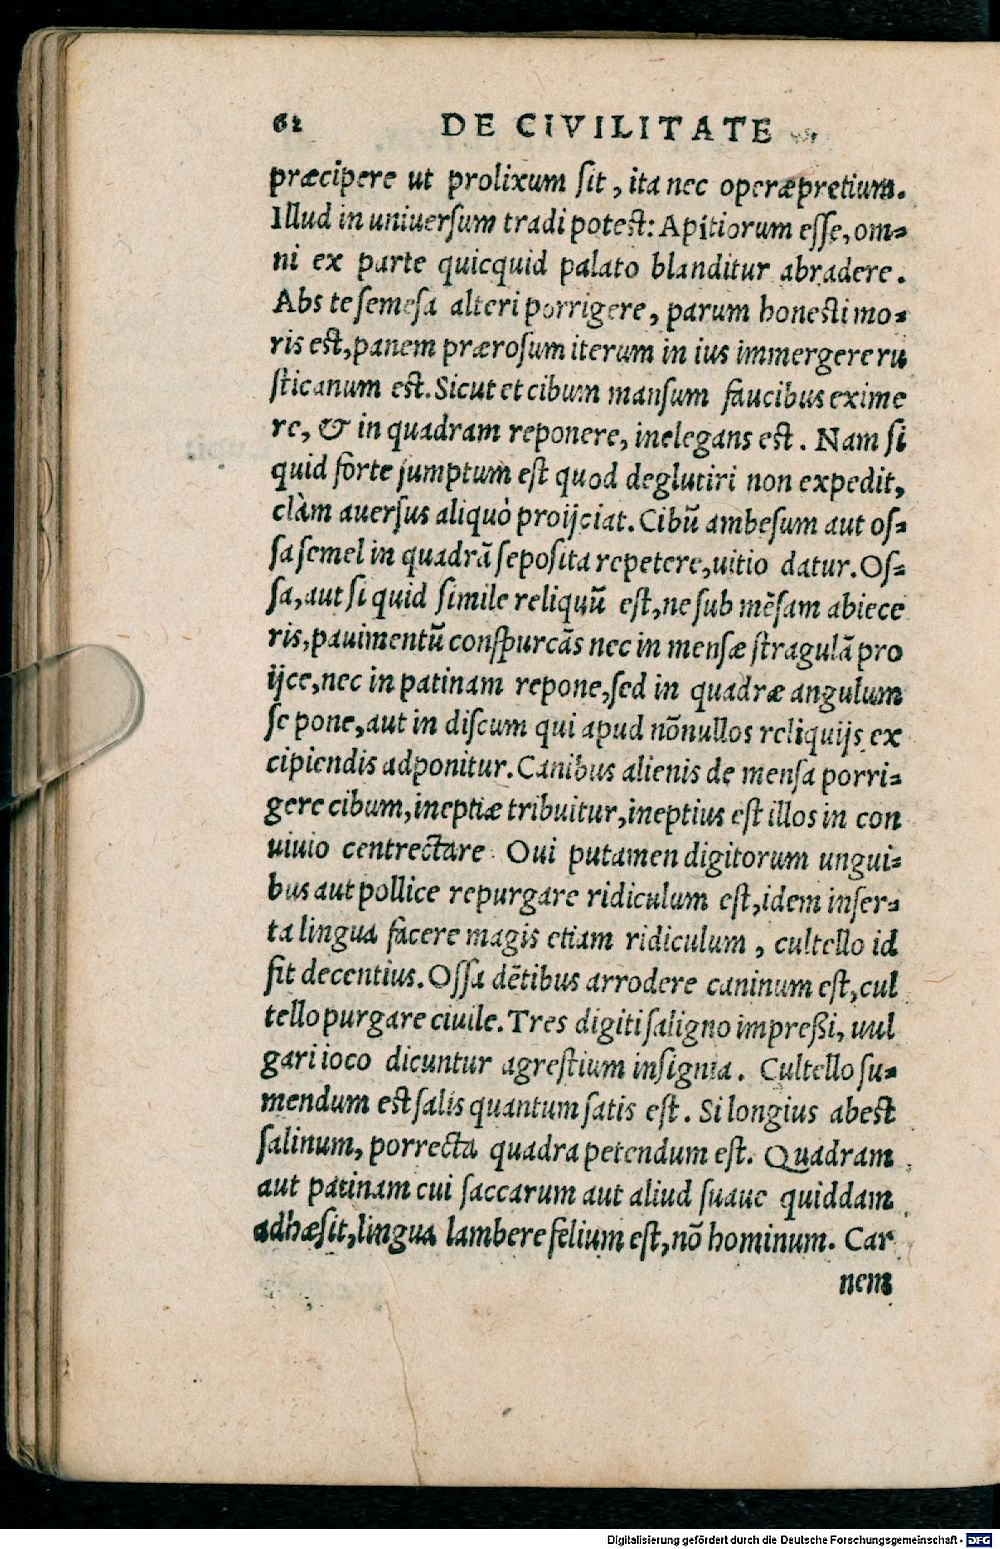 62 DE CIVILITATE
præcipere ut prolixum sit, ita nec operæpretium.
Illud in uniuersum tradi potest: Apitiorum esse, om-
ni ex parte quicquid palato blanditur abradere.
Abs te semesa alteri porrigere, parum honesti mo-
ris est, panem prærosum iterum in ius immergere ru
sticanum est. Sicut et cibum mansum faucibus exime
re, & in quadram reponere, inelegans est. Nam si
quid forte sumptum est quod deglutiri non expedit,
clàm auersus aliquò proijciat. Cibū ambesum aut os-
sa semel in quadrā seposita repetere, uitio datur. Os-
sa, aut si quid simile reliquū est, ne sub mēsam abiece
ris, pauimentū conspurcās nec in mensæ stragulā pro
ijce, nec in patinam repone, sed in quadræ angulum
se pone, aut in discum qui apud nōnullos reliquijs ex
cipiendis adponitur. Canibus alienis de mensa porri-
gere cibum, ineptiæ tribuitur, ineptius est illos in con
uiuio centrectare. Oui putamen digitorum ungui-
bus aut pollice repurgare ridiculum est, idem inser-
ta lingua facere magis etiam ridiculum, cultello id
fit decentius. Ossa dētibus arrodere caninum est, cul
tello purgare ciuile. Tres digiti saligno impreßi, uul
gari ioco dicuntur agrestium insignia. Cultello su-
mendum est salis quantum satis est. Si longius abest
salinum, porrecta quadra petendum est. Quadram
aut patinam cui saccarum aut aliud suaue quiddam
adhæsit, lingua lambere felium est, nō hominum. Car
nem
Digitalisierung gefördert durch die Deutsche Forschungsgemeinschaft - DFG